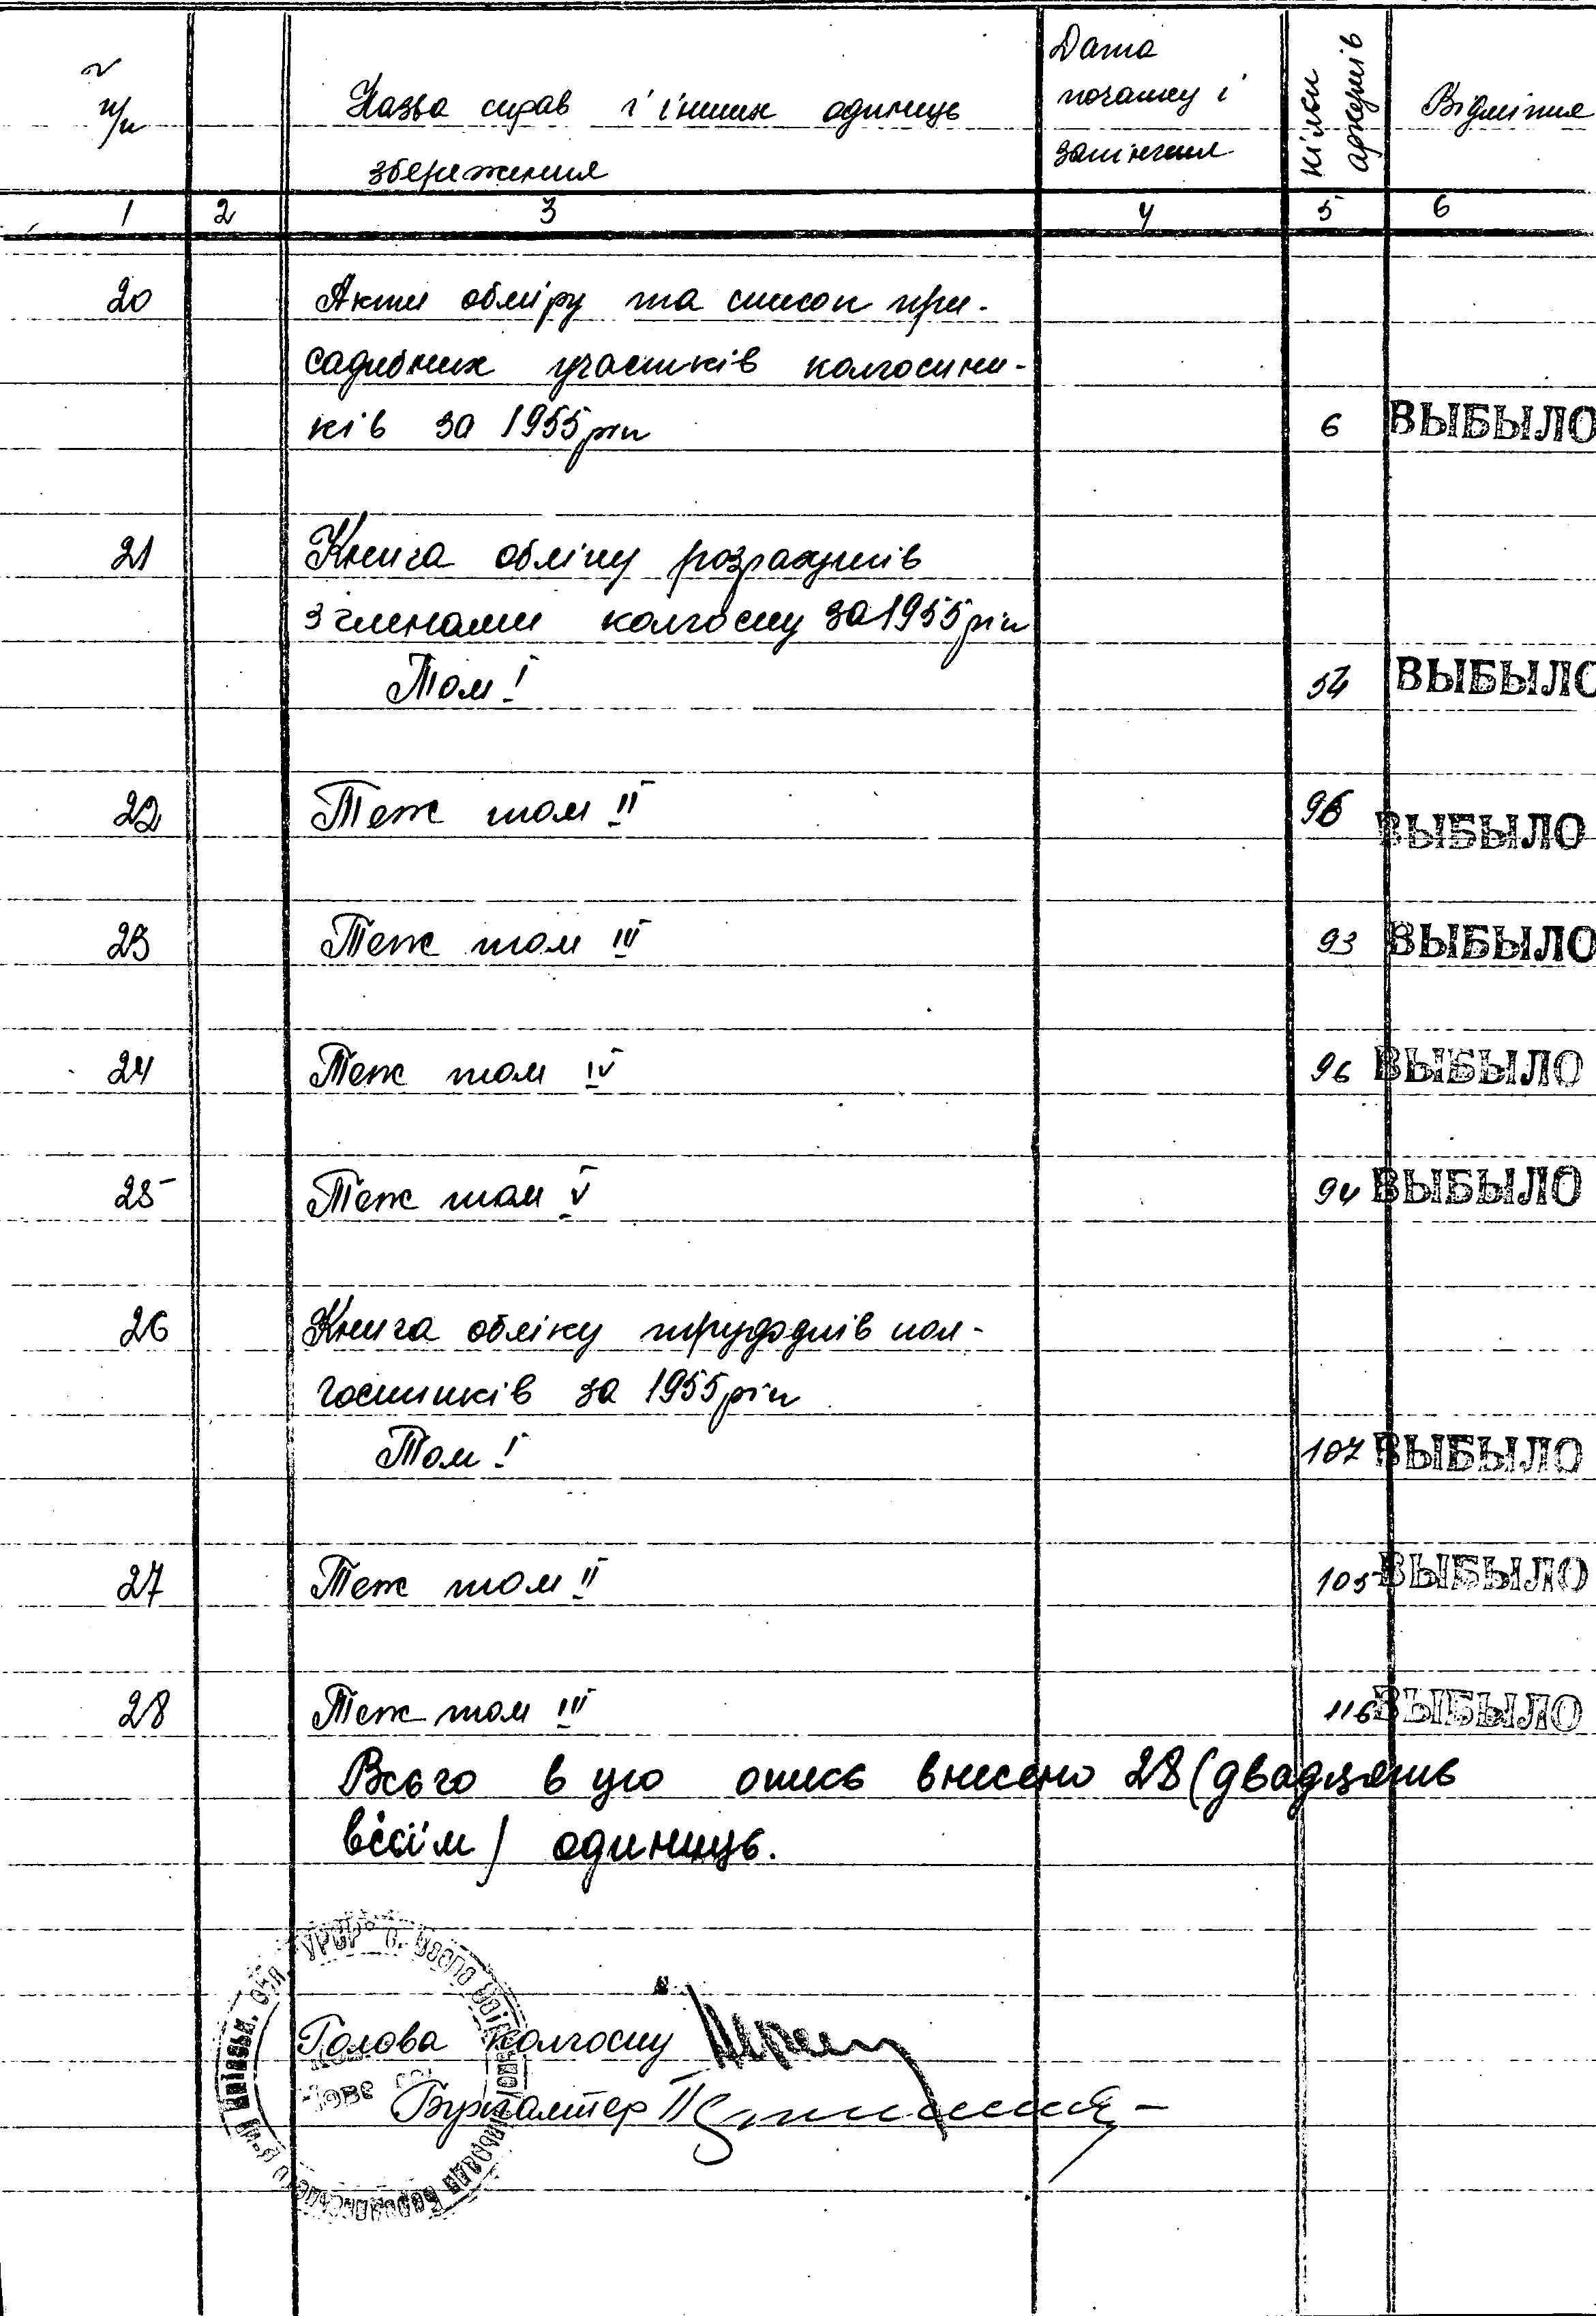 № п/п
Назва справ і інших одиниць збереження
Дата початку і закінчення
Кільк аркушів
Відмітка
1 2 3 4 5 6
20 Акти обміру та список при-
садибних участків колгоспни-
ків за 1955 рік 6 ВЫБЫЛО
21 Книга обліку розрахунків
з членами колгоспу за 1955 рік
Том I 54 ВЫБЫЛО
22 Теж том II 96 ВЫБЫЛО
23 Теж том III 93 ВЫБЫЛО
24 Теж том IV 96 ВЫБЫЛО
25 Теж том V 94 ВЫБЫЛО
26 Книга обліку трудоднів кол-
госпників за 1955 рік
Том I 107 ВЫБЫЛО
27 Теж том II 105 ВЫБЫЛО
28 Теж том III 116 ВЫБЫЛО
Всього в цю опись внесено 28 (двадцять
вісім) одиниць.
УРСР
Голова колгоспу
Бухгалтер